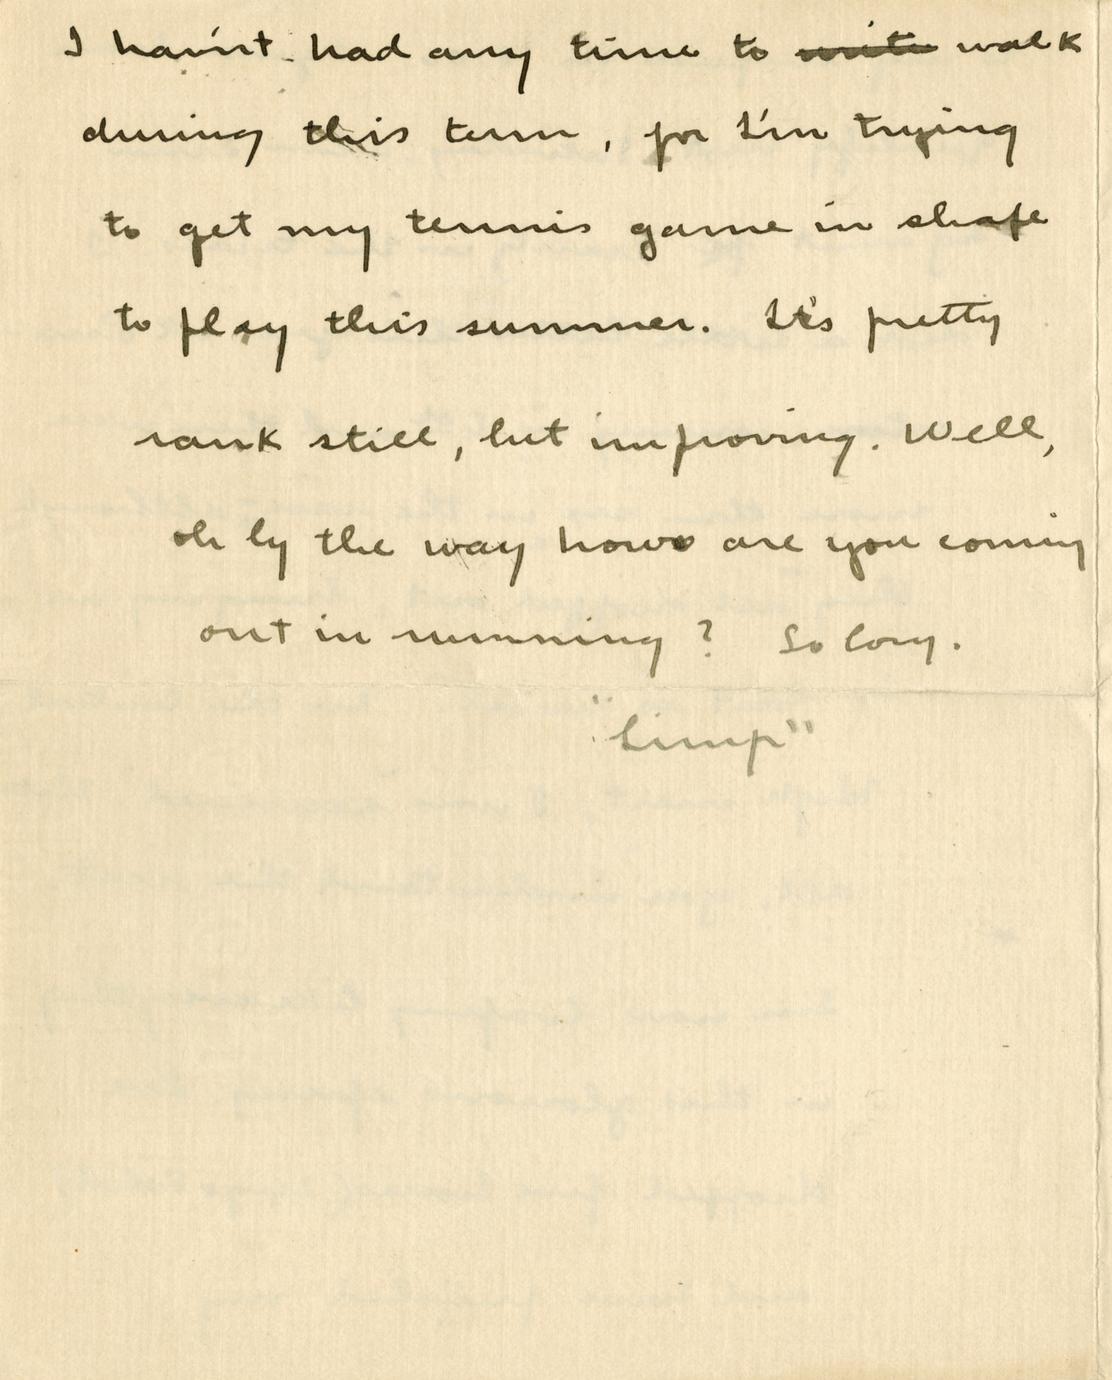 I hav'nt had any time to write walk
during this term, for I'm trying
to get my tennis game in shape
to play this summer. It's pretty
rank still, but improving. Well,
oh by the way how are you coming
out in running? So long.
"Limp"